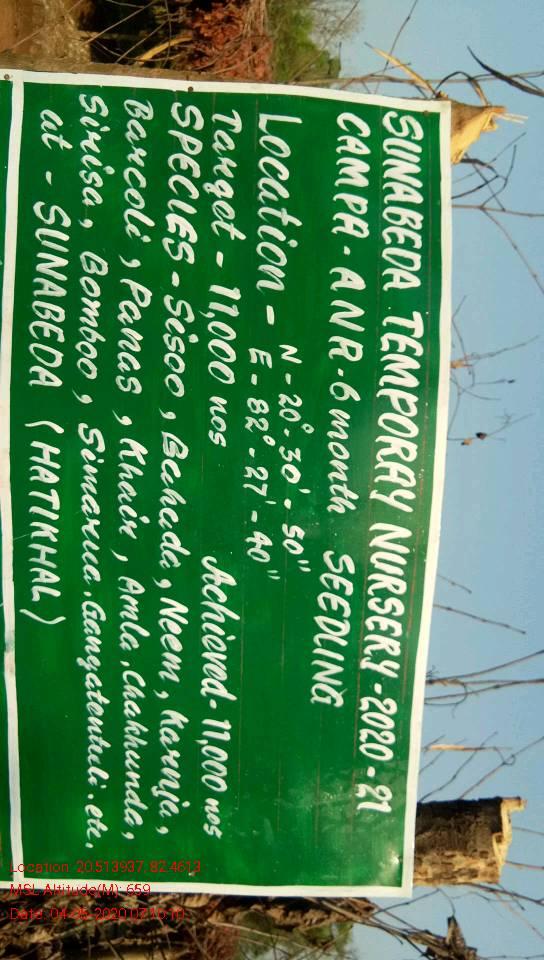 SUNABEDA TEMPORAY NURSERY-2020-21
CAMPA-ANR-6 month SEEDLING
Location - N-20°-30'-50"
E-82°-27'-40"
Target - 11,000 nos Achieved-11,000 nos
SPECIES-Sisoo, Bahada, Neem, Karnja,
Barcoli, Panas, Khair, Amla, Chakhunda,
Sirisa, Bomboo, Simarua, Gangatentuli. etc.
at - SUNABEDA (HATIKHAL)
Location: 20.513937, 82.4613
MSL Altitude(M): 659